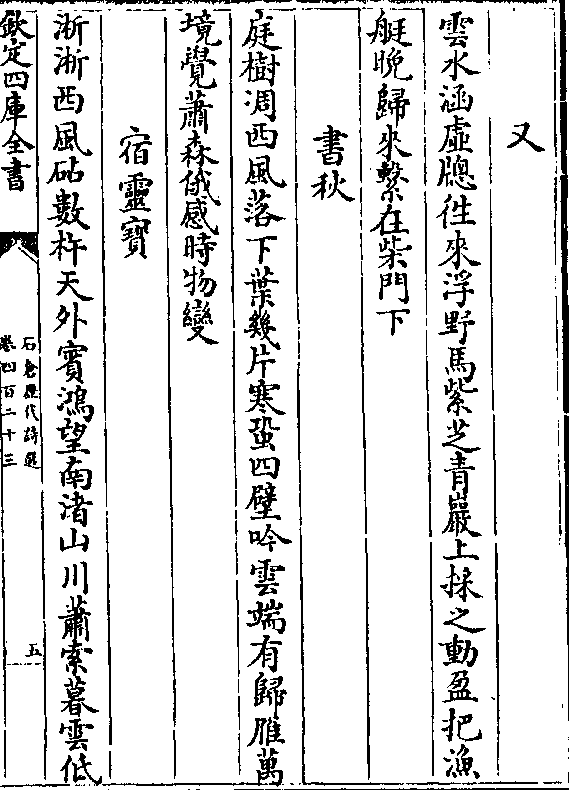 又
雲水涵虛牕徃來浮野馬紫芝青巖上採之動盈把漁
艇晚歸來繫在柴門下
書秋
庭樹凋西風落下葉幾片寒蛩四壁吟雲端有歸雁萬
境覺蕭森俄感時物變
宿靈寶
淅淅西風砧數杵天外賓鴻望南渚山川蕭索暮雲低
欽定四庫全書
石倉歷代詩選
卷四百二十三
五